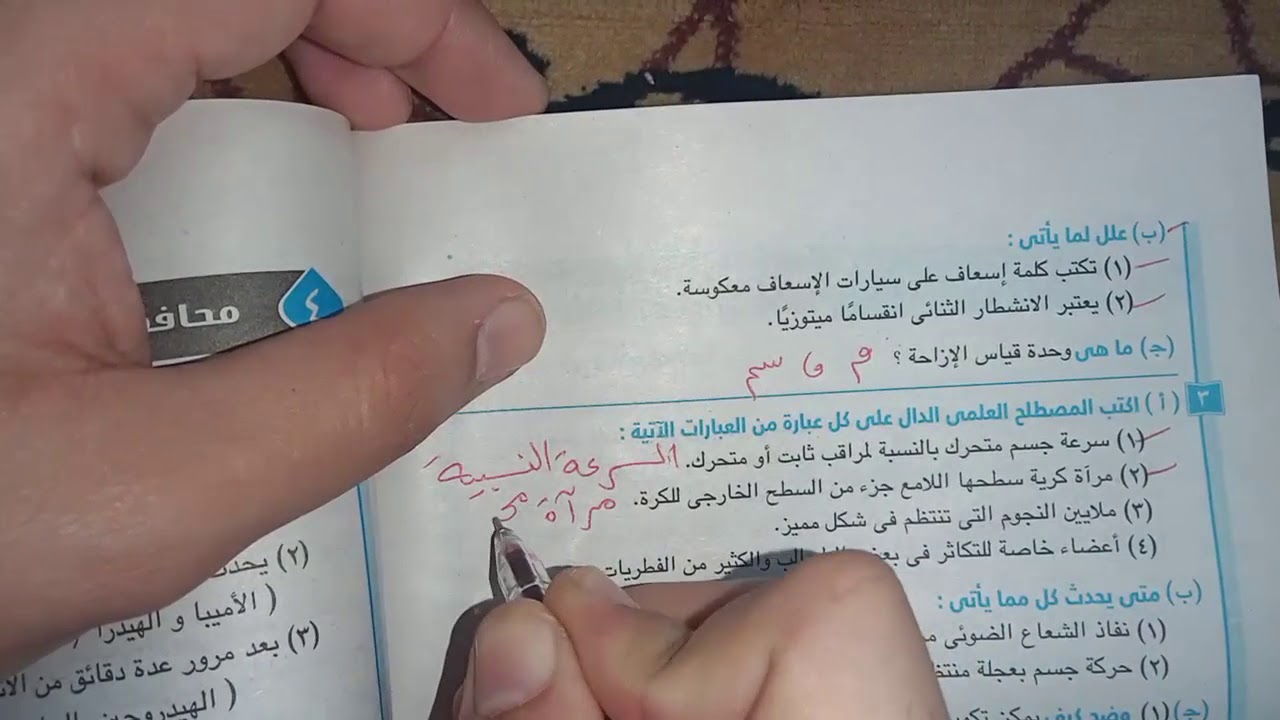 (ب) علل لما يأتى :
(١) تكتب كلمة إسعاف على سيارات الإسعاف معكوسة.
(٢) يعتبر الانشطار الثنائى انقسامًا ميتوزيًا.
(ج) ما هى وحدة قياس الإزاحة ؟ م ، سم
٣ (أ) اكتب المصطلح العلمى الدال على كل عبارة من العبارات الآتية :
(١) سرعة جسم متحرك بالنسبة لمراقب ثابت أو متحرك. السرعة النسبية
(٢) مرآة كرية سطحها اللامع جزء من السطح الخارجى للكرة. مرآة مح
(٣) ملايين النجوم التى تنتظم فى شكل مميز.
(٤) أعضاء خاصة للتكاثر فى والكثير من الفطريات
(ب) متى يحدث كل مما يأتى :
(١) نفاذ الشعاع الضوئى
(٢) حركة جسم بعجلة
(ج) (١) وضح كيف يمكن
٤
(٢)
( الأميبا و الهيدرا
(٣) بعد مرور عدة دقائق من